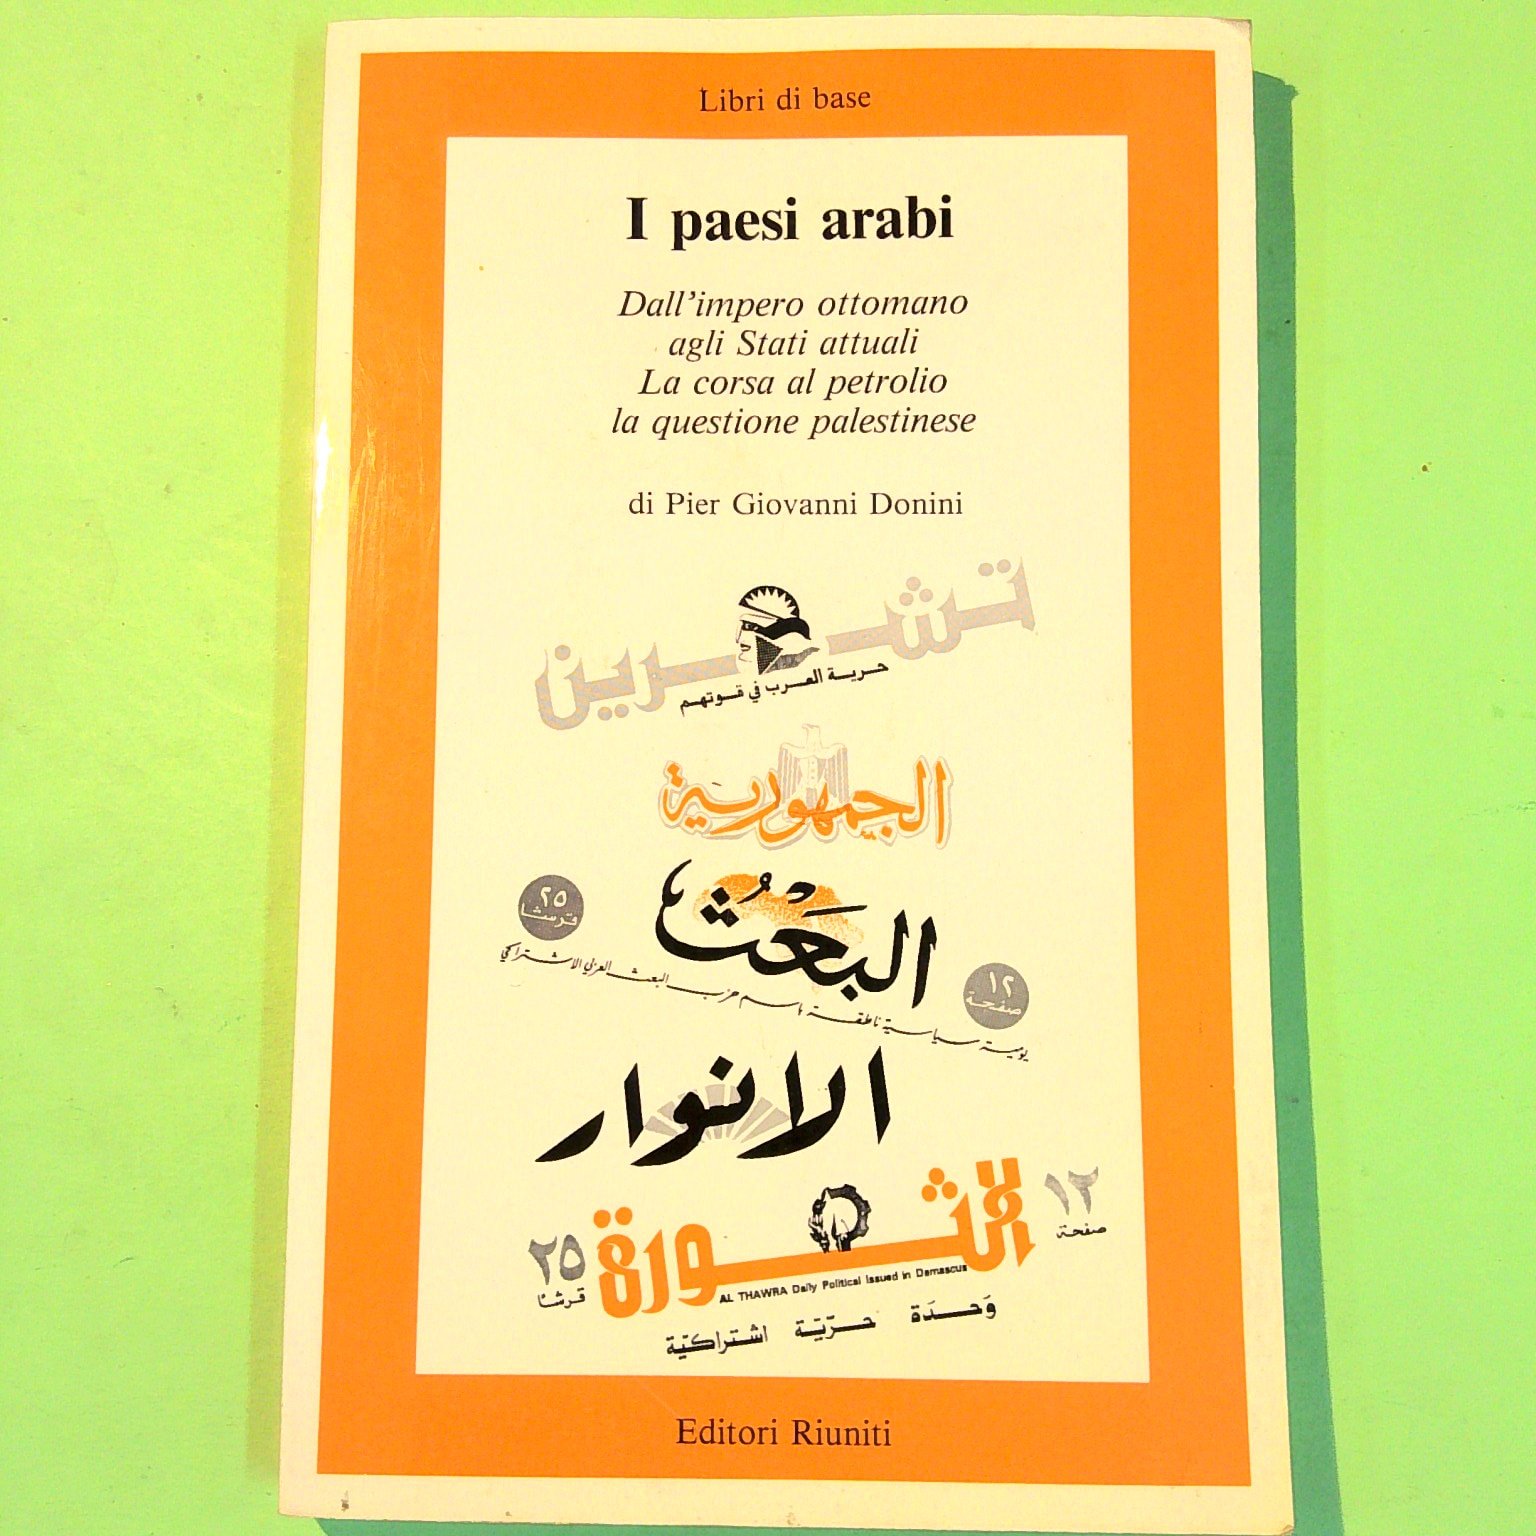 Libri di base
I paesi arabi
Dall'impero ottomano
agli Stati attuali
La corsa al petrolio
la questione palestinese
di Pier Giovanni Donini
تشرين
حرية العرب في قوتهم
الجمهورية
البَعْثُ
٢٥
قرشا
١٢
صفحة
يومية سياسية ناطقة باسم حزب البعث العربي الاشتراكي
الانوار
الثورة
١٢
صفحة
٢٥
قرشا
AL THAWRA Daily Political Issued in Damascus
وَحدَة حرّيّة اشتراكيّة
Editori Riuniti